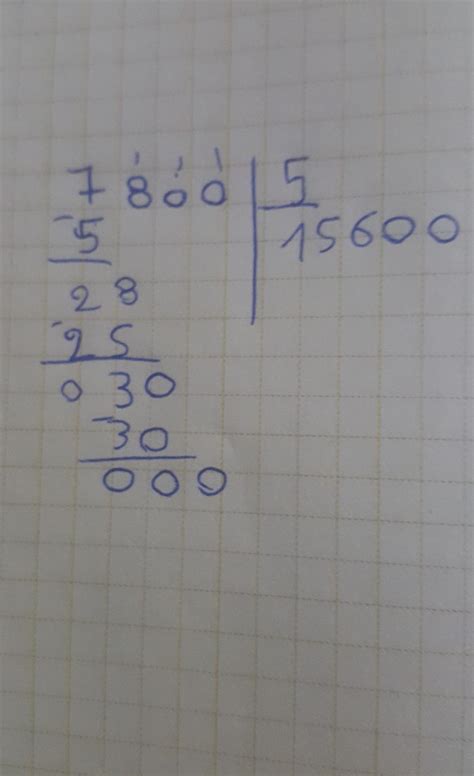 7800 5
-5 15600
28
-25
030
-30
000